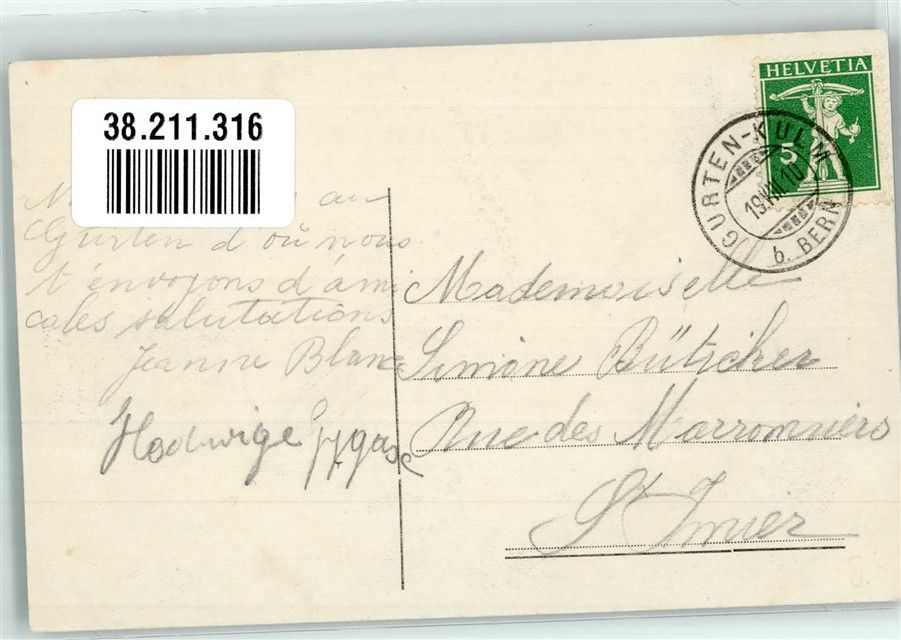 38.211.316
HELVETIA
5
GURTEN-KULM
19.VII.10
b. BERN
au
Gurten d'où nous
t'envoyons d'ami
cales salutations
Jeanne Blanc
Hedwige
Mademoiselle
Simone Bütscher
Rue des Marronniers
St Imier